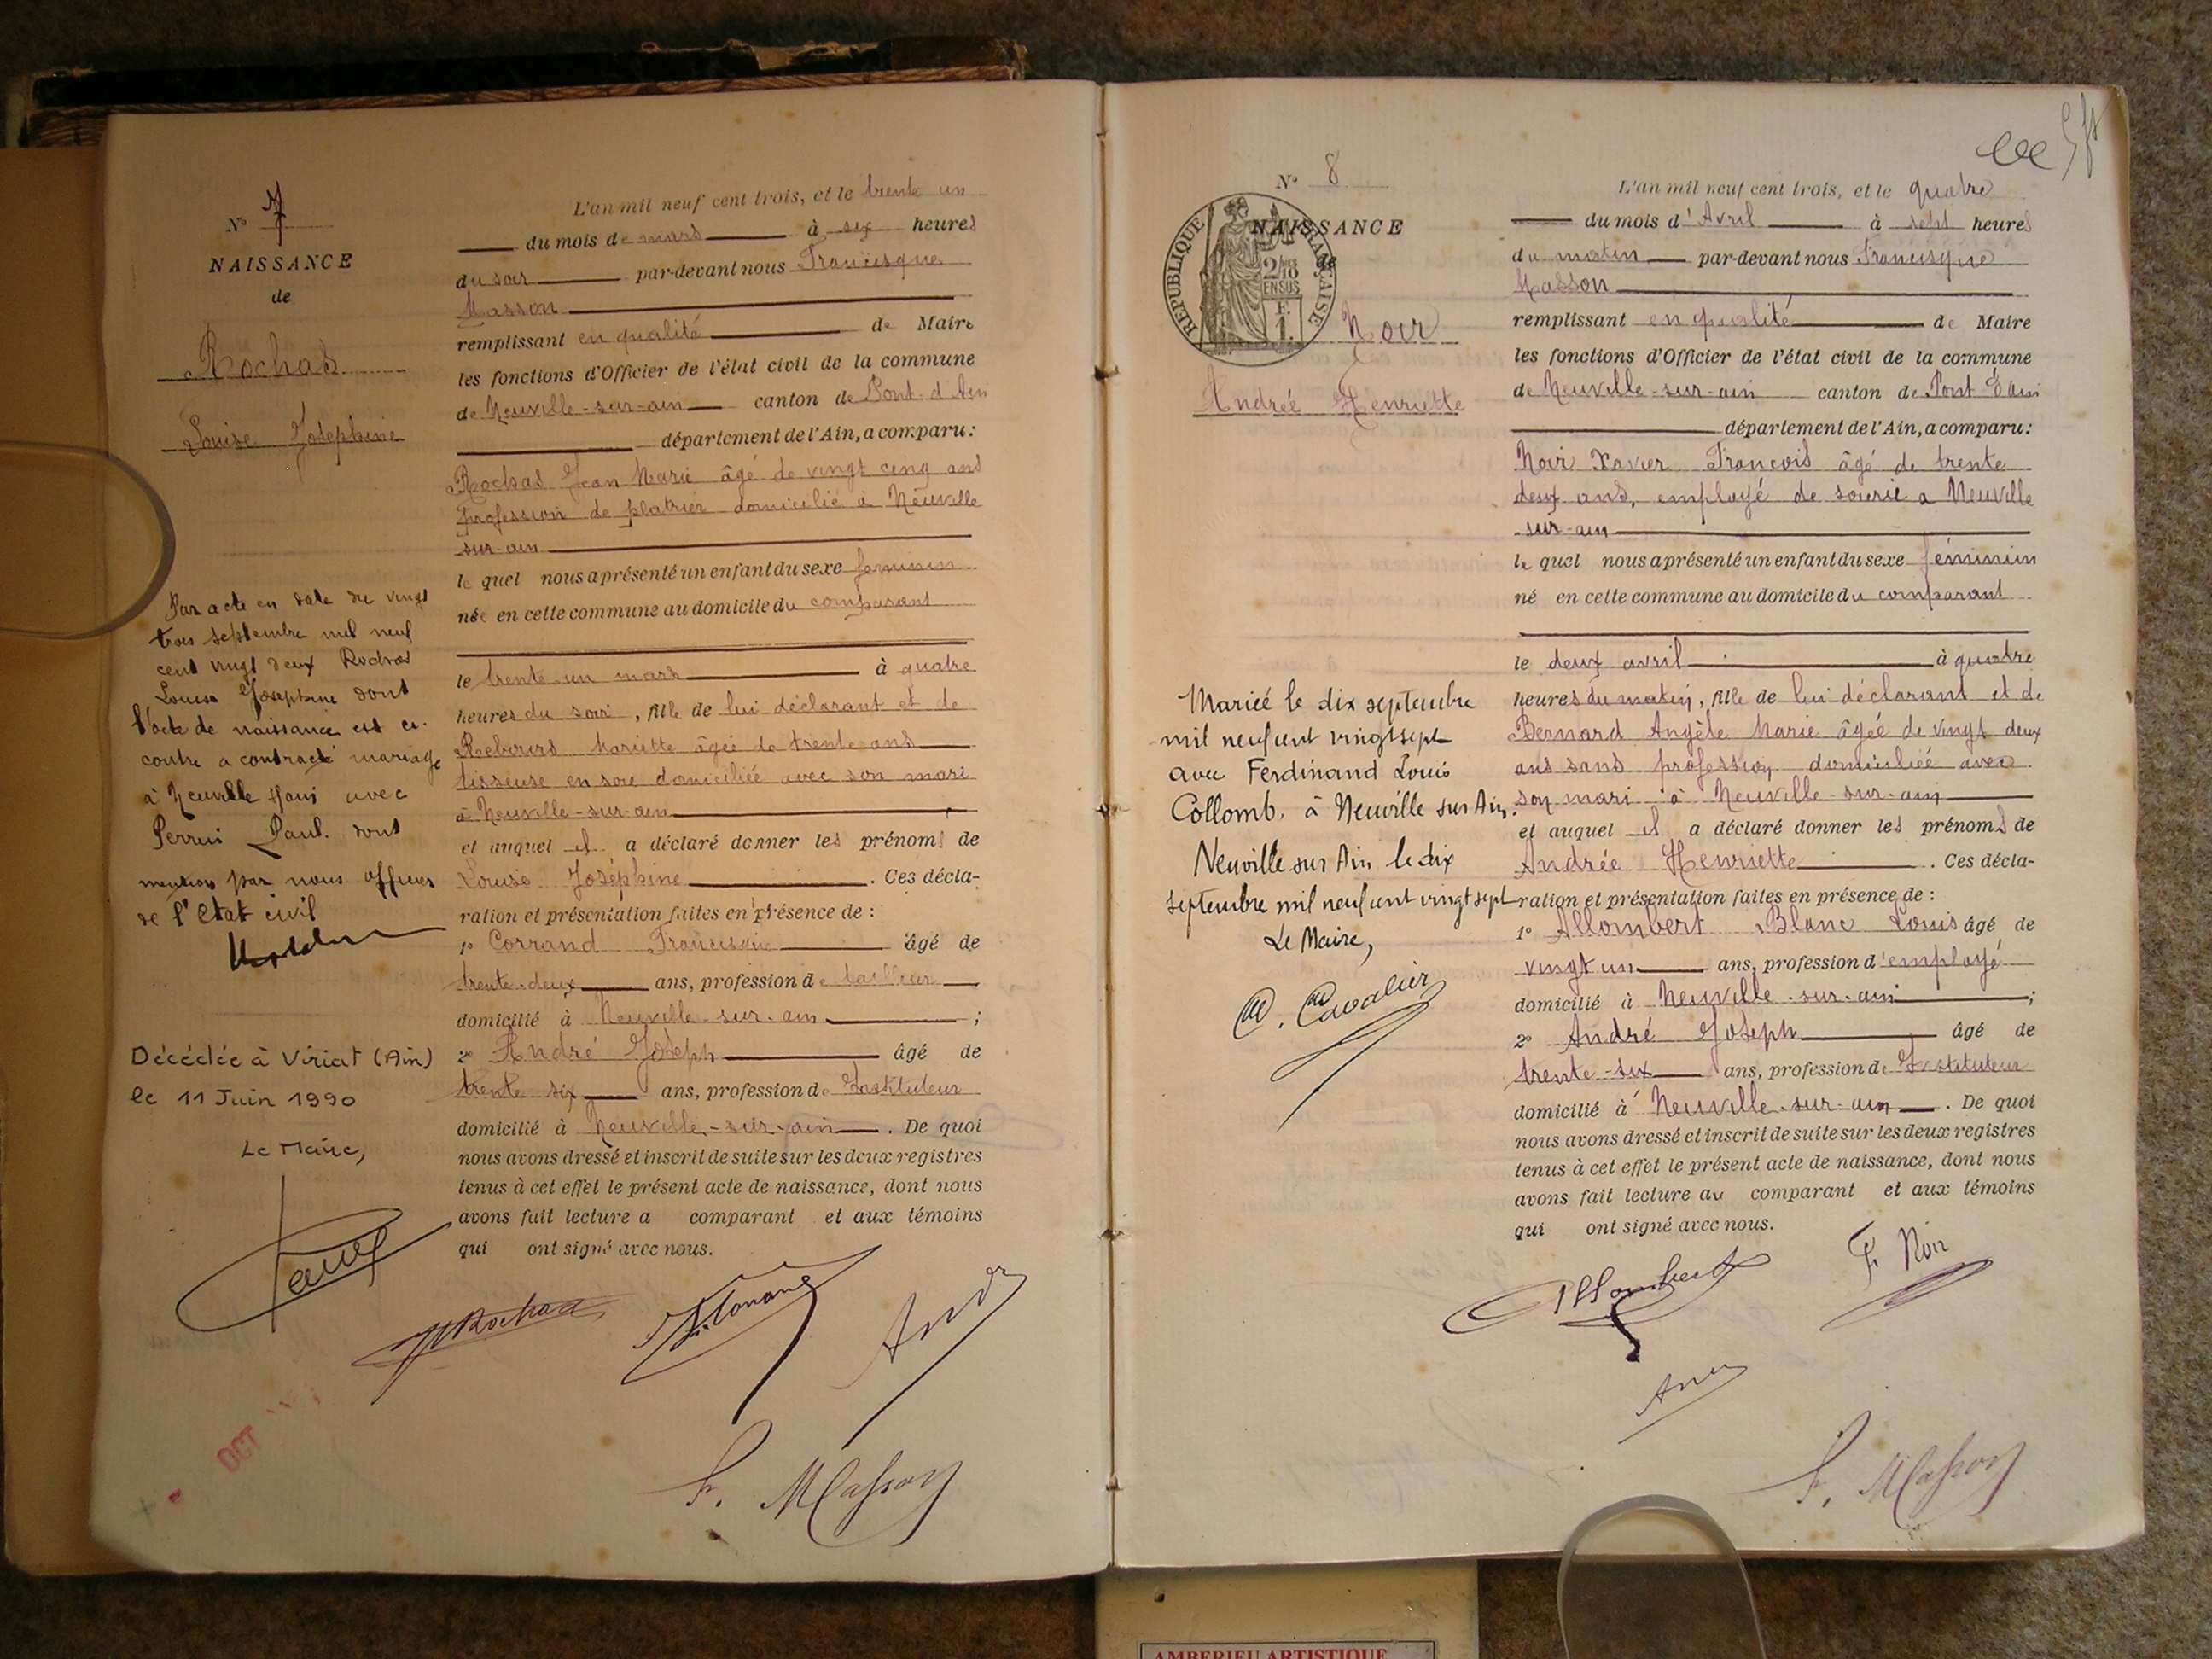 N° 7
NAISSANCE
de
Rochas
Louise Joséphine
Par acte en date du vingt
trois septembre mil neuf
cent vingt deux Rochas
Louise Joséphine dont
l'acte de naissance est ci-
contre a contracté mariage
à Neuville s/ain avec
Perrin Paul. dont
mention par nous officier
de l'Etat civil
Décédée à Viriat (Ain)
le 11 Juin 1990
Le Maire,
OCT
L'an mil neuf cent trois, et le trente un
du mois de mars à six heures
du soir par-devant nous Francisque
Masson
remplissant en qualité de Maire
les fonctions d'Officier de l'état civil de la commune
de Neuville-sur-ain canton de Pont d'Ain
département de l'Ain, a comparu:
Rochas Jean Marie âgé de vingt cinq ans
profession de platrier domicilié à Neuville
sur-ain
le quel nous a présenté un enfant du sexe féminin
née en cette commune au domicile du comparant
le trente-un mars à quatre
heures du soir, fille de lui déclarant et de
Rebours Mariette âgée de trente ans
tisseuse en soie domiciliée avec son mari
à Neuville-sur-ain
et auquel il a déclaré donner les prénoms de
Louise Joséphine. Ces décla-
ration et présentation faites en présence de:
1° Corrand Francisque âgé de
trente-deux ans, profession de tailleur
domicilié à Neuville-sur-ain;
2° André Joseph âgé de
trente six ans, profession de Instituteur
domicilié à Neuville-sur-ain. De quoi
nous avons dressé et inscrit de suite sur les deux registres
tenus à cet effet le présent acte de naissance, dont nous
avons fait lecture a comparant et aux témoins
qui ont signé avec nous.
Rochas
André
F. Masson
N° 8
NAISSANCE
de
RÉPUBLIQUE FRANÇAISE
2/10 EN SUS
F. 1.
Noir
Andrée Henriette
Mariée le dix septembre
mil neuf cent vingt sept
avec Ferdinand Louis
Collomb, à Neuville sur Ain.
Neuville sur Ain le dix
septembre mil neuf cent vingt sept
Le Maire,
Cavalier
L'an mil neuf cent trois, et le quatre
du mois d'Avril à sept heures
du matin par-devant nous Francisque
Masson
remplissant en qualité de Maire
les fonctions d'Officier de l'état civil de la commune
de Neuville-sur-ain canton de Pont d'ain
département de l'Ain, a comparu:
Noir Xavier François âgé de trente
deux ans, employé de soierie a Neuville
sur-ain
le quel nous a présenté un enfant du sexe féminin
né en cette commune au domicile du comparant
le deux avril à quatre
heures du matin, fille de lui déclarant et de
Bernard Angèle Marie âgée de vingt deux
ans sans profession domiciliée avec
son mari à Neuville-sur-ain
et auquel il a déclaré donner les prénoms de
Andrée Henriette. Ces décla-
ration et présentation faites en présence de:
1° Allombert Blanc Louis âgé de
vingt un ans, profession d'employé
domicilié à Neuville-sur-ain;
2° André Joseph âgé de
trente-six ans, profession de Instituteur
domicilié à Neuville-sur-ain. De quoi
nous avons dressé et inscrit de suite sur les deux registres
tenus à cet effet le présent acte de naissance, dont nous
avons fait lecture au comparant et aux témoins
qui ont signé avec nous.
Allombert
F. Noir
André
F. Masson
AMBERIEU ARTISTIQUE